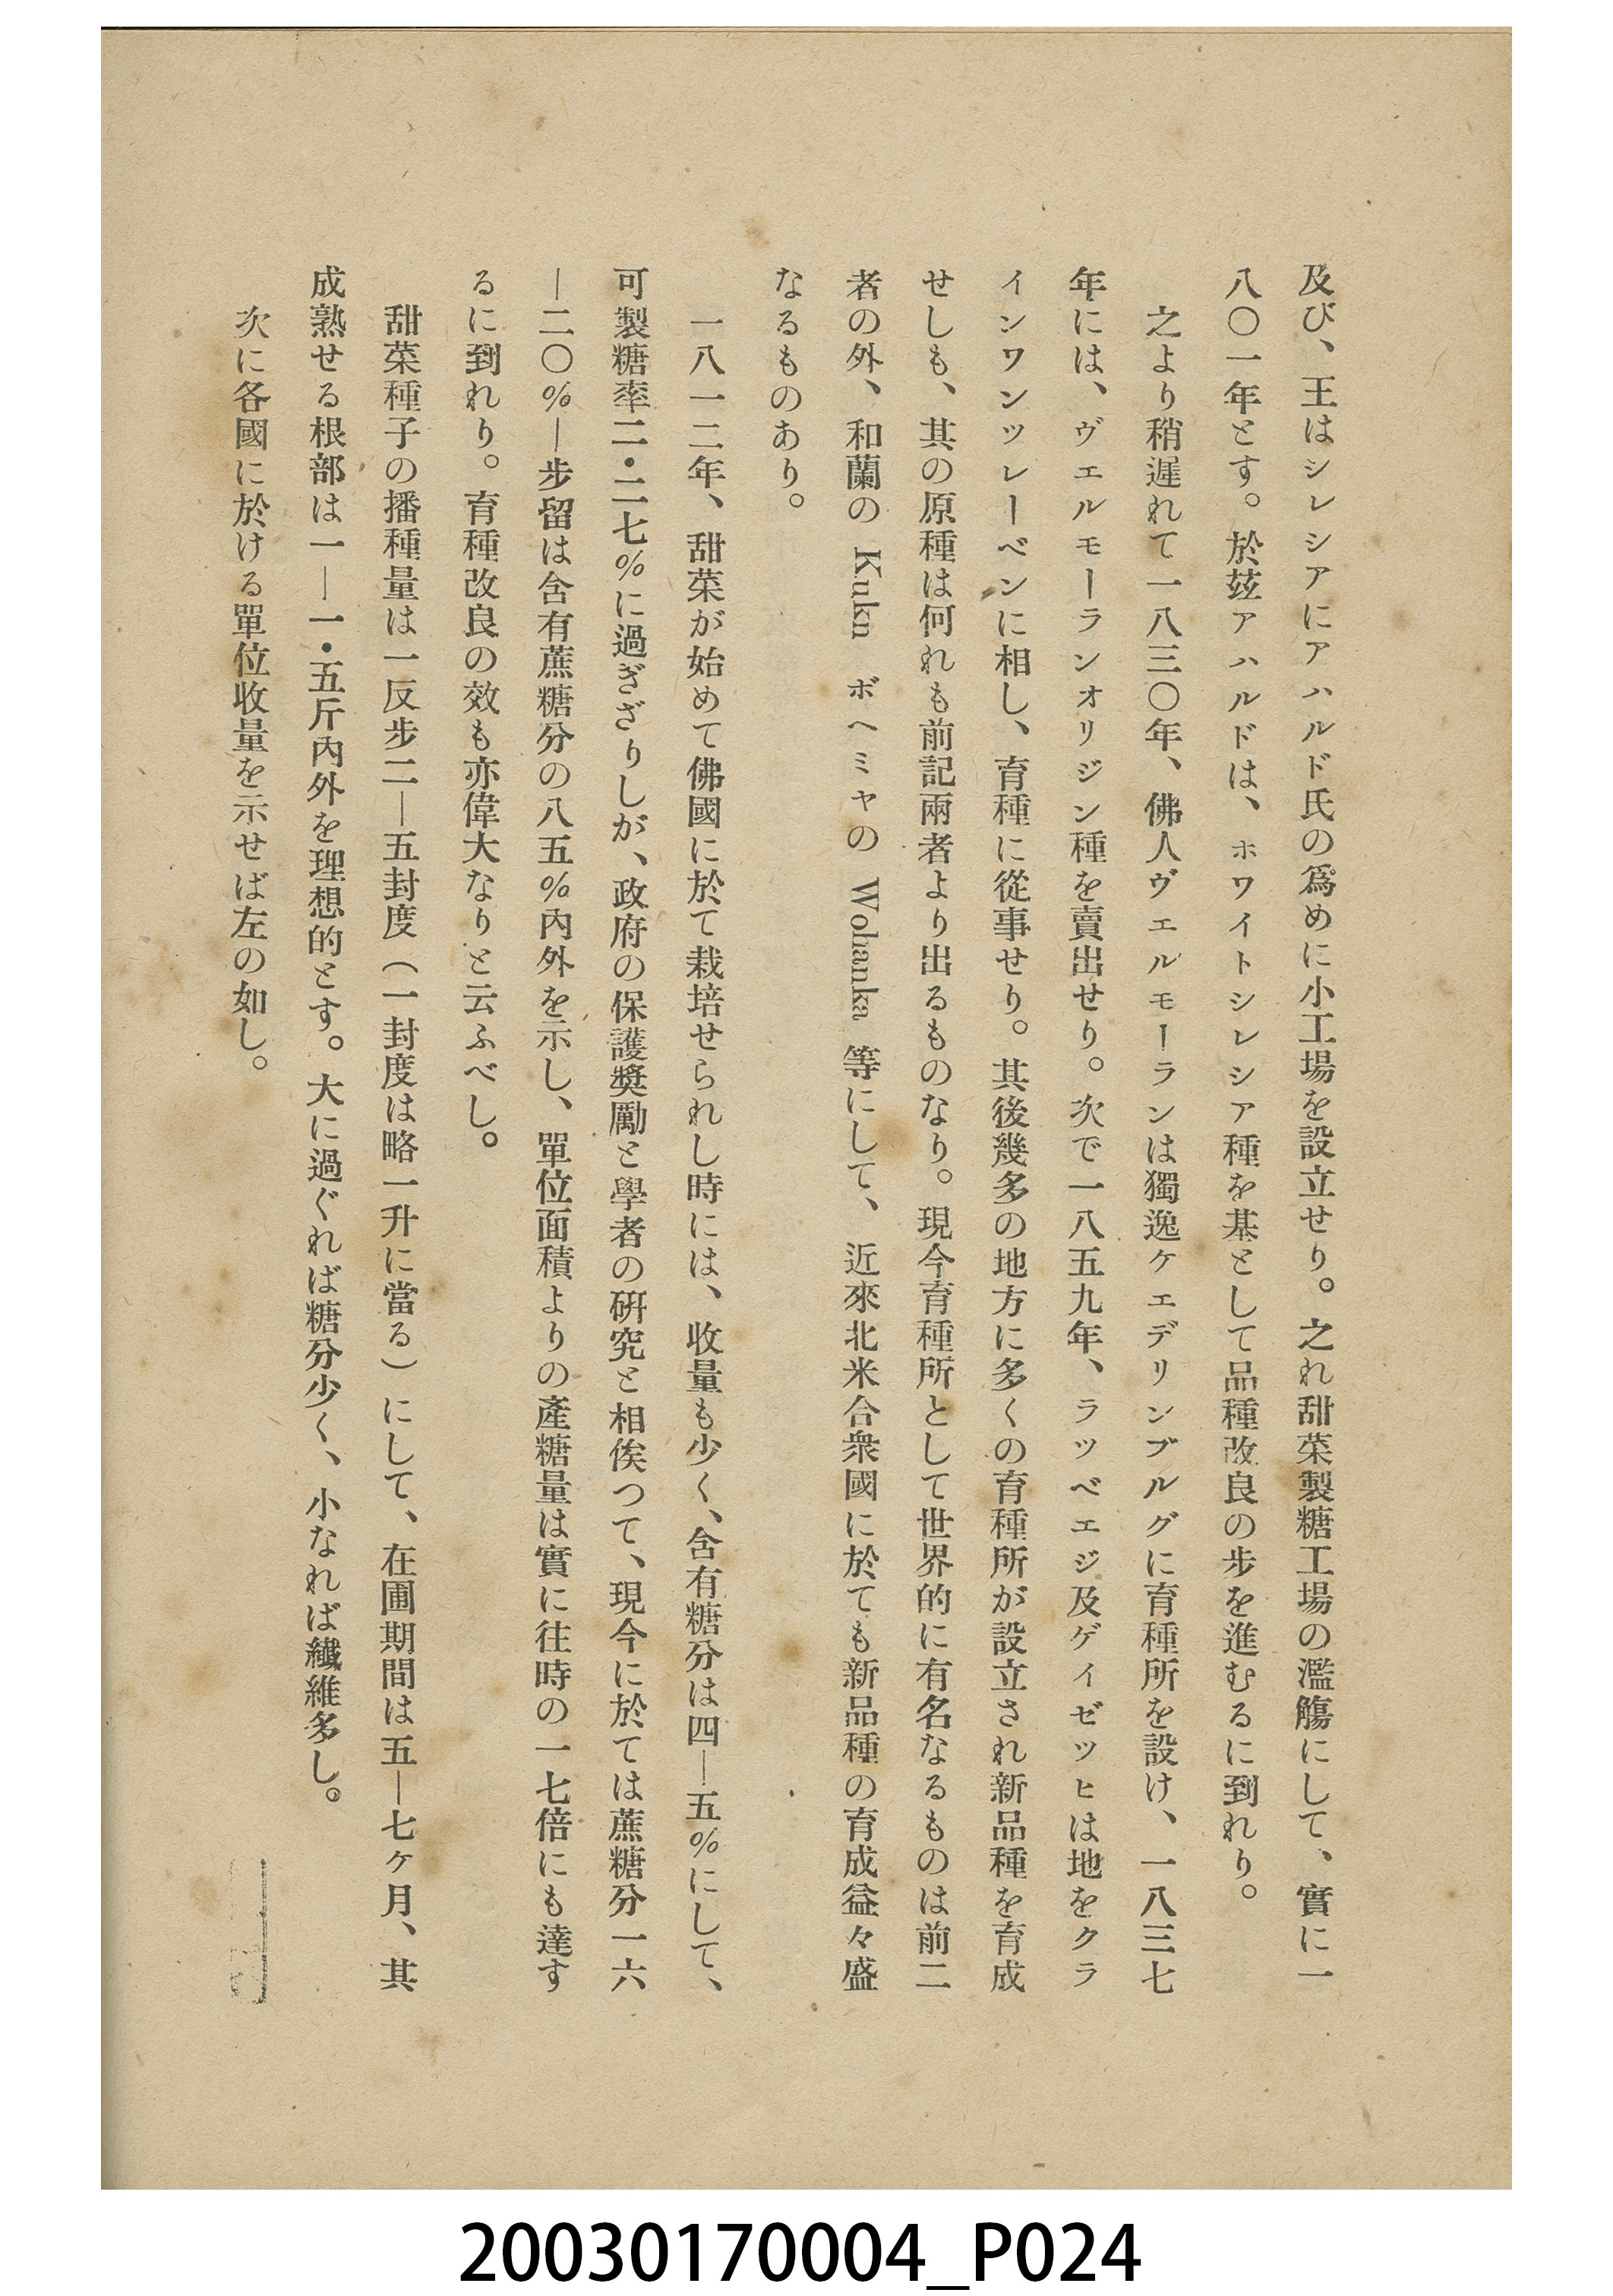 及び、王はシレシアにアハルド氏の爲めに小工場を設立せり。之れ甜菜製糖工場の濫觴にして、實に一
八〇一年とす。於玆アハルドは、ホワイトシレシア種を基として品種改良の步を進むるに到れり。
之より稍遲れて一八三〇年、佛人ヴエルモーランは獨逸ケエデリンブルグに育種所を設け、一八三七
年には、ヴエルモーランオリジン種を賣出せり。次で一八五九年、ラツベエジ及ゲイゼツヒは地をクラ
インワンツレーベンに相し、育種に從事せり。其後幾多の地方に多くの育種所が設立され新品種を育成
せしも、其の原種は何れも前記兩者より出るものなり。現今育種所として世界的に有名なるものは前二
者の外、和蘭の Kuhn ボヘミヤの Wohanka 等にして、近來北米合衆國に於ても新品種の育成益々盛
なるものあり。
一八一二年、甜菜が始めて佛國に於て栽培せられし時には、收量も少く、含有糖分は四—五%にして、
可製糖率二・二七%に過ぎざりしが、政府の保護奬勵と學者の硏究と相俟つて、現今に於ては蔗糖分一六
—二〇%—步留は含有蔗糖分の八五%內外を示し、單位面積よりの產糖量は實に往時の一七倍にも達す
るに到れり。育種改良の效も亦偉大なりと云ふべし。
甜菜種子の播種量は一反步二—五封度（一封度は略一升に當る）にして、在圃期間は五—七ヶ月、其
成熟せる根部は一—一・五斤內外を理想的とす。大に過ぐれば糖分少く、小なれば纖維多し。
次に各國に於ける單位收量を示せば左の如し。
20030170004_P024